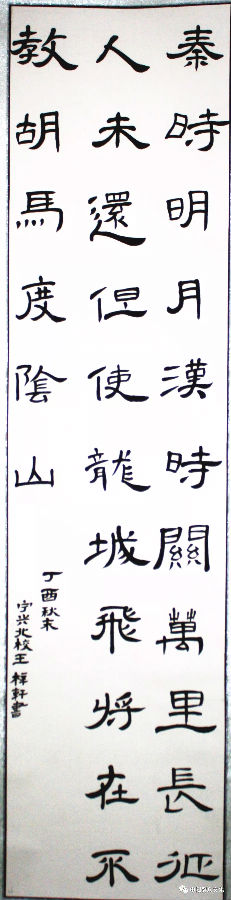 秦時明月漢時關萬里長征
人未還但使龍城飛將在不
教胡馬度陰山
丁酉秋末
兴北校王軒書